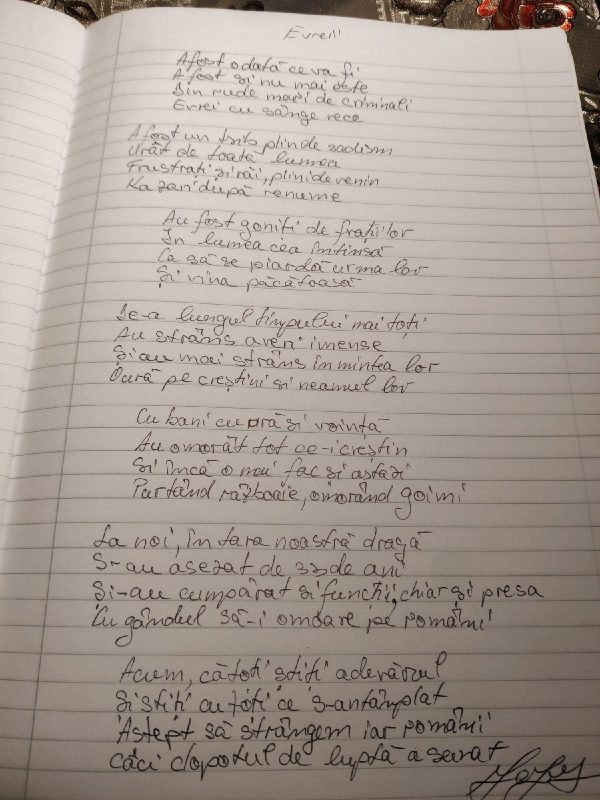 Evreii
A fost odată ce va fi
A fost și nu mai este
Din rude mari de criminali
Evrei cu sânge rece
A fost un trib plin de sadism
Urât de toată lumea
Frustrați și răi, plini de venin
Kazani după renume
Au fost goniți de frații lor
În lumea cea întinsă
Ca să se piardă urma lor
Și vina păcătoasă
De-a lungul timpului mai toți
Au strâns averi imense
Și au mai strâns în mintea lor
Oură pe creștini și neamul lor
Cu bani cu ură și voință
Au omorât tot ce-i creștin
Și încă o mai fac și astăzi
Purtând războaie, omorând goimi
La noi, în țara noastră dragă
S-au așezat de 33 de ani
Și-au cumpărat și funcții, chiar și presa
Cu gândul să-i omoare pe români
Acum, că toți știți adevărul
Și știți cu toți ce s-antâmplat
Aștept să strângem iar românii
Căci clopotul de luptă a sunat